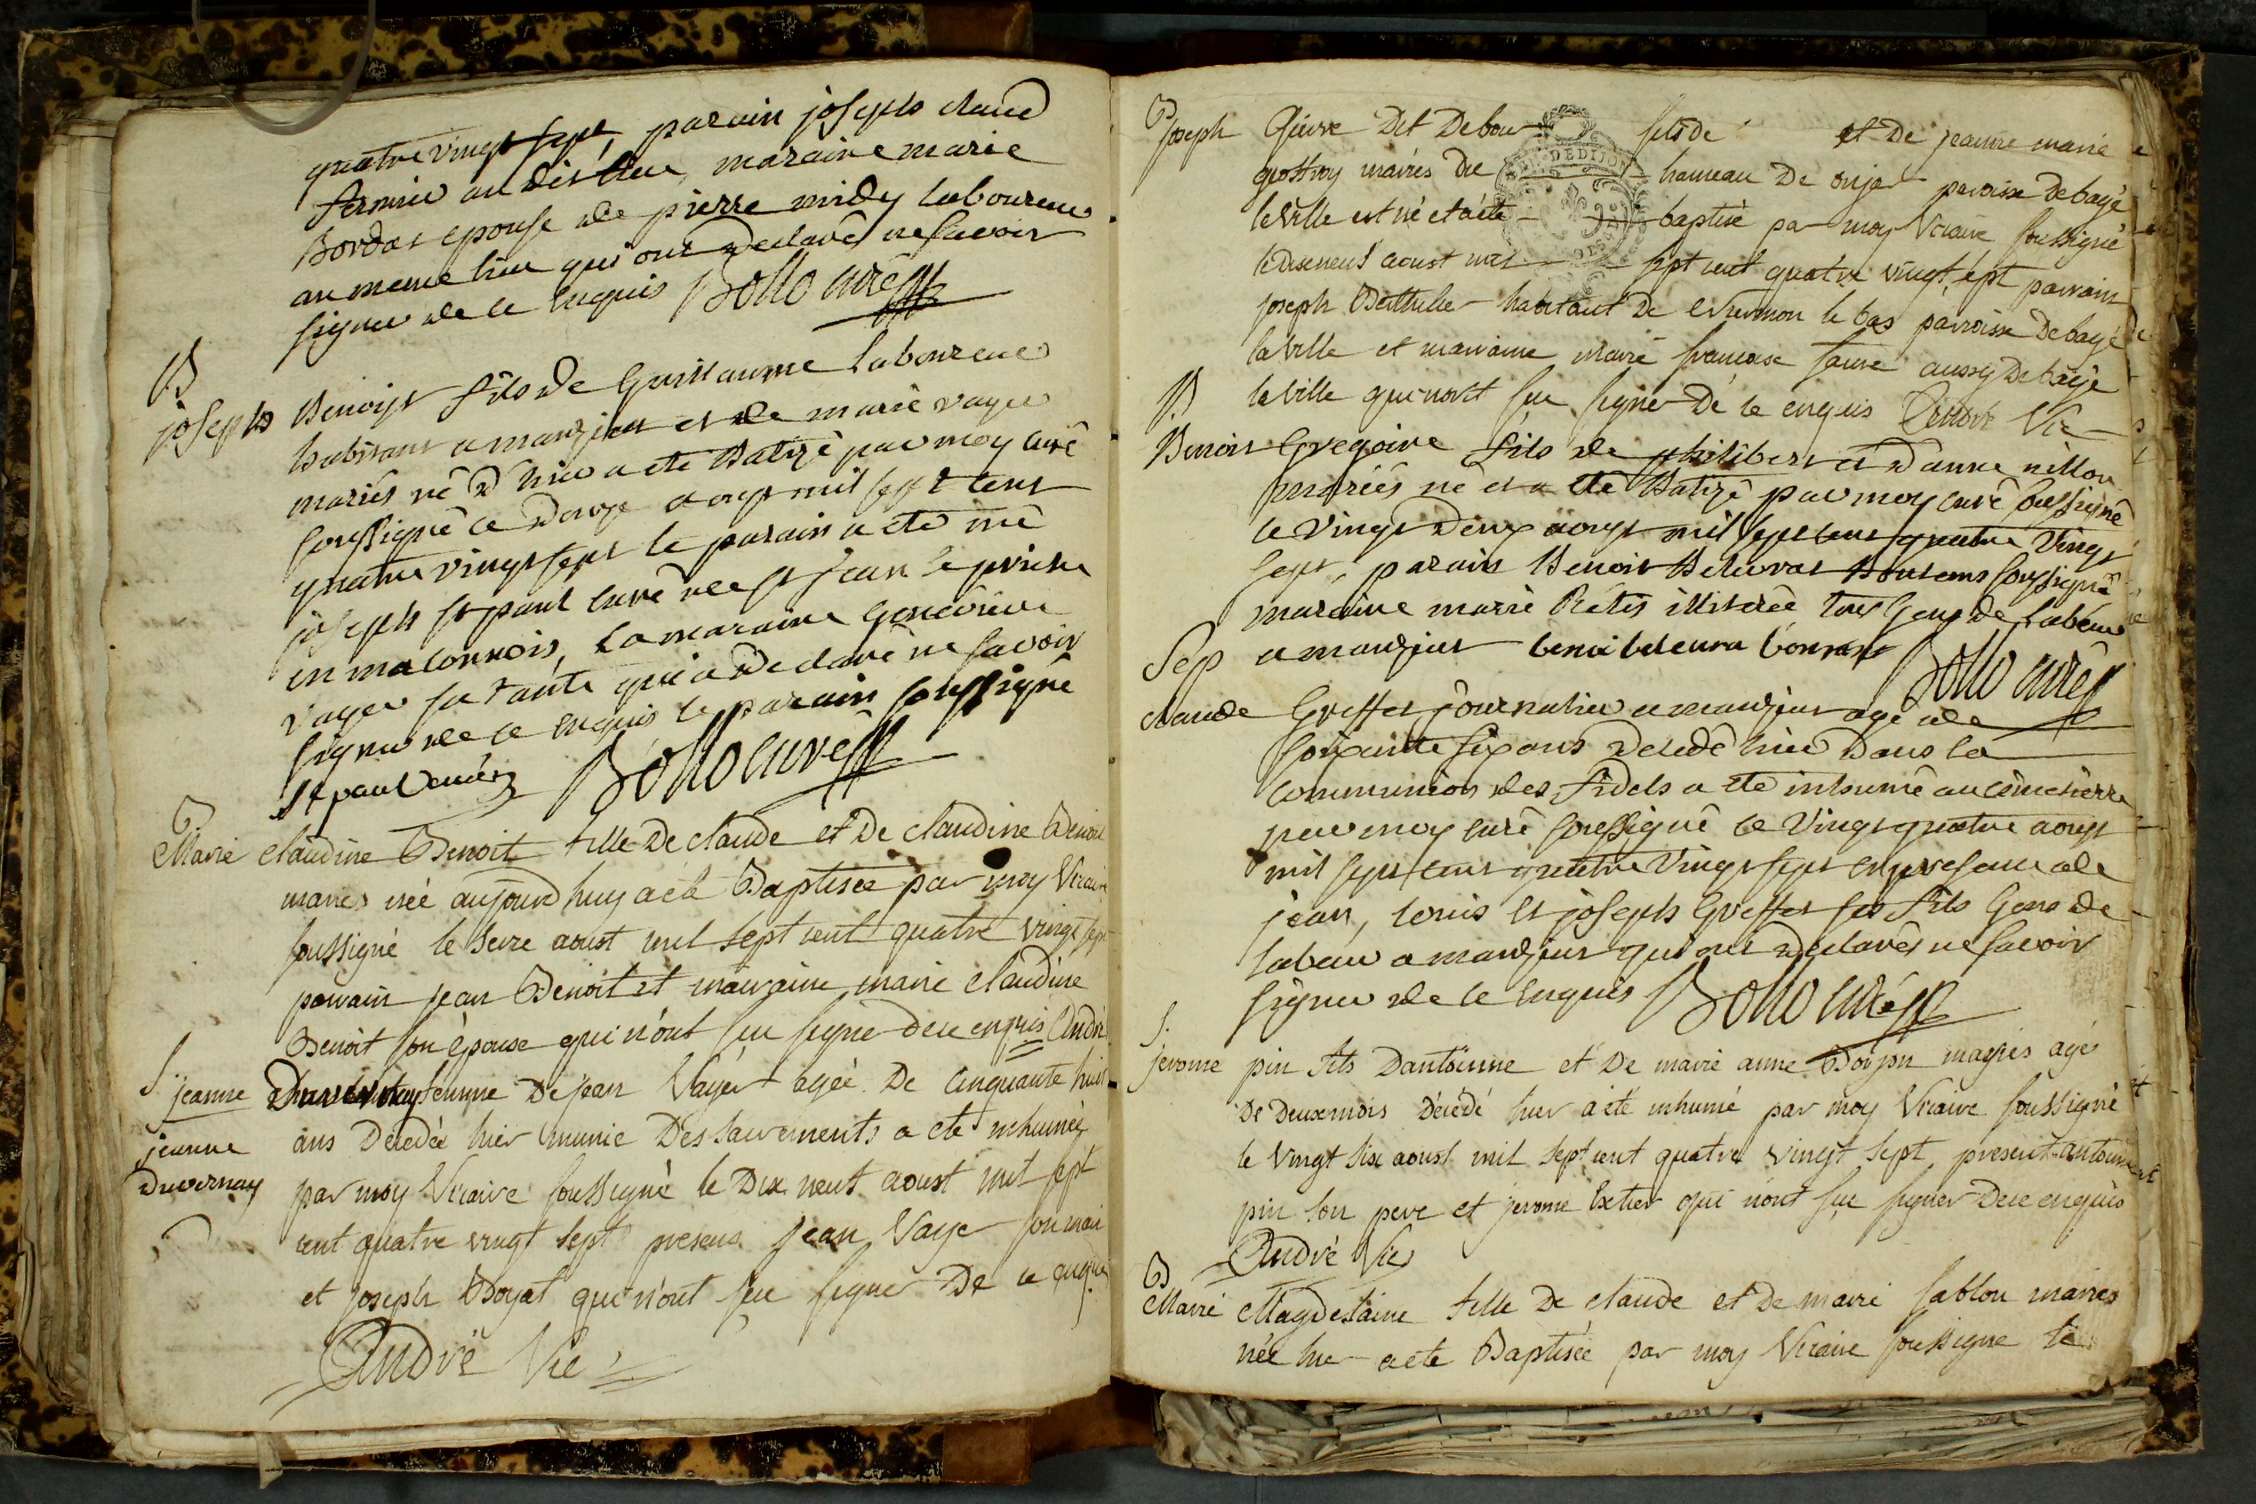 quatre vingt sept, parain joseph claude
fermier audit lieu, maraine marie
Bordat epouse de pierre midy laboureur
au meme lieu qui ont declarés ne savoir
signer de ce enquis Bollo curé
B
joseph Benoist fils de Guillaume laboureur
habitant a manziat et de marie vayer
mariés né d'hier a eté Batizé par moy curé
soussigné ce douze aoust mil sept cent
quatre vingt sept le parain a eté mé
joseph st paul curé de st jean le priche
en maconnois, la maraine Genevieve
vayer sa tante qui a declaré ne savoir
signer de ce enquis le parain soussigné
St paul curé Bollo curé
B
Marie claudine Benoit fille De claude et De claudine Benoit
mariés née aujourdhuy a eté Baptisée par moy Vicaire
soussigné le seize aoust mil sept cent quatre vingt sept
parrain jean Benoit et marraine marie claudine
Benoit son épouse qui n'ont su signer de ce enquis André
S jeanne femme De jean Vayer agée De cinquante huit
jeanne ans Décedée hier munie Des sacrements a eté inhumée
Duvernay par moy Vicaire soussigné le Dix neuf aoust mil sept
cent quatre vingt sept presens jean Vaye son mari
et joseph Boyat qui n'ont su signer De ce enquis
André Vic
B
joseph Gievre Dit Debou fils de et De jeanne marie
mariés du hameau De onjar paroisse De bagé
la ville est né et a eté baptisé par moy Vicaire soussigné
le dixneuf aoust mil sept cent quatre vingt sept parrain
joseph habitant De le bas parroisse De bagé
la ville et marraine marie francoise aussy De bagé
la ville qui n'ont su signer De ce enquis André Vic
B
Benoit Gregoire fils de philibert et d'anne nillon
mariés né et a eté Batizé par moy curé soussigné
le vingt deux aoust mil sept cent quatre vingt
sept, parain Benoit Beleurat soussigné
maraine marie Rétis illiterée tous gens de labeur
a manziat benoi beleura Bollo curé
Sep
claude Greffet journalier a manziat agé de
soixante six ans decedé hier dans la
communion des fidels a eté inhumé au cimetierre
par moy curé soussigné ce vingt quatre aoust
mil sept cent quatre vingt sept en presence de
jean, louis et joseph Greffet ses fils Gens de
labeur a manziat qui ont declarés ne savoir
signer de ce enquis Bollo curé
S.
jerome pin fils Dantoinne et De marie anne Boyon mariés agé
De Deux mois décédé hier a eté inhumé par moy Vicaire soussigné
le vingt six aoust mil sept cent quatre vingt sept present antoinne
pin son pere et jerome qui n'ont su signer De ce enquis
André Vic
B
Marie Magdelaine fille De claude et De marie sablon mariés
née hier a eté Baptisée par moy Vicaire soussigné le